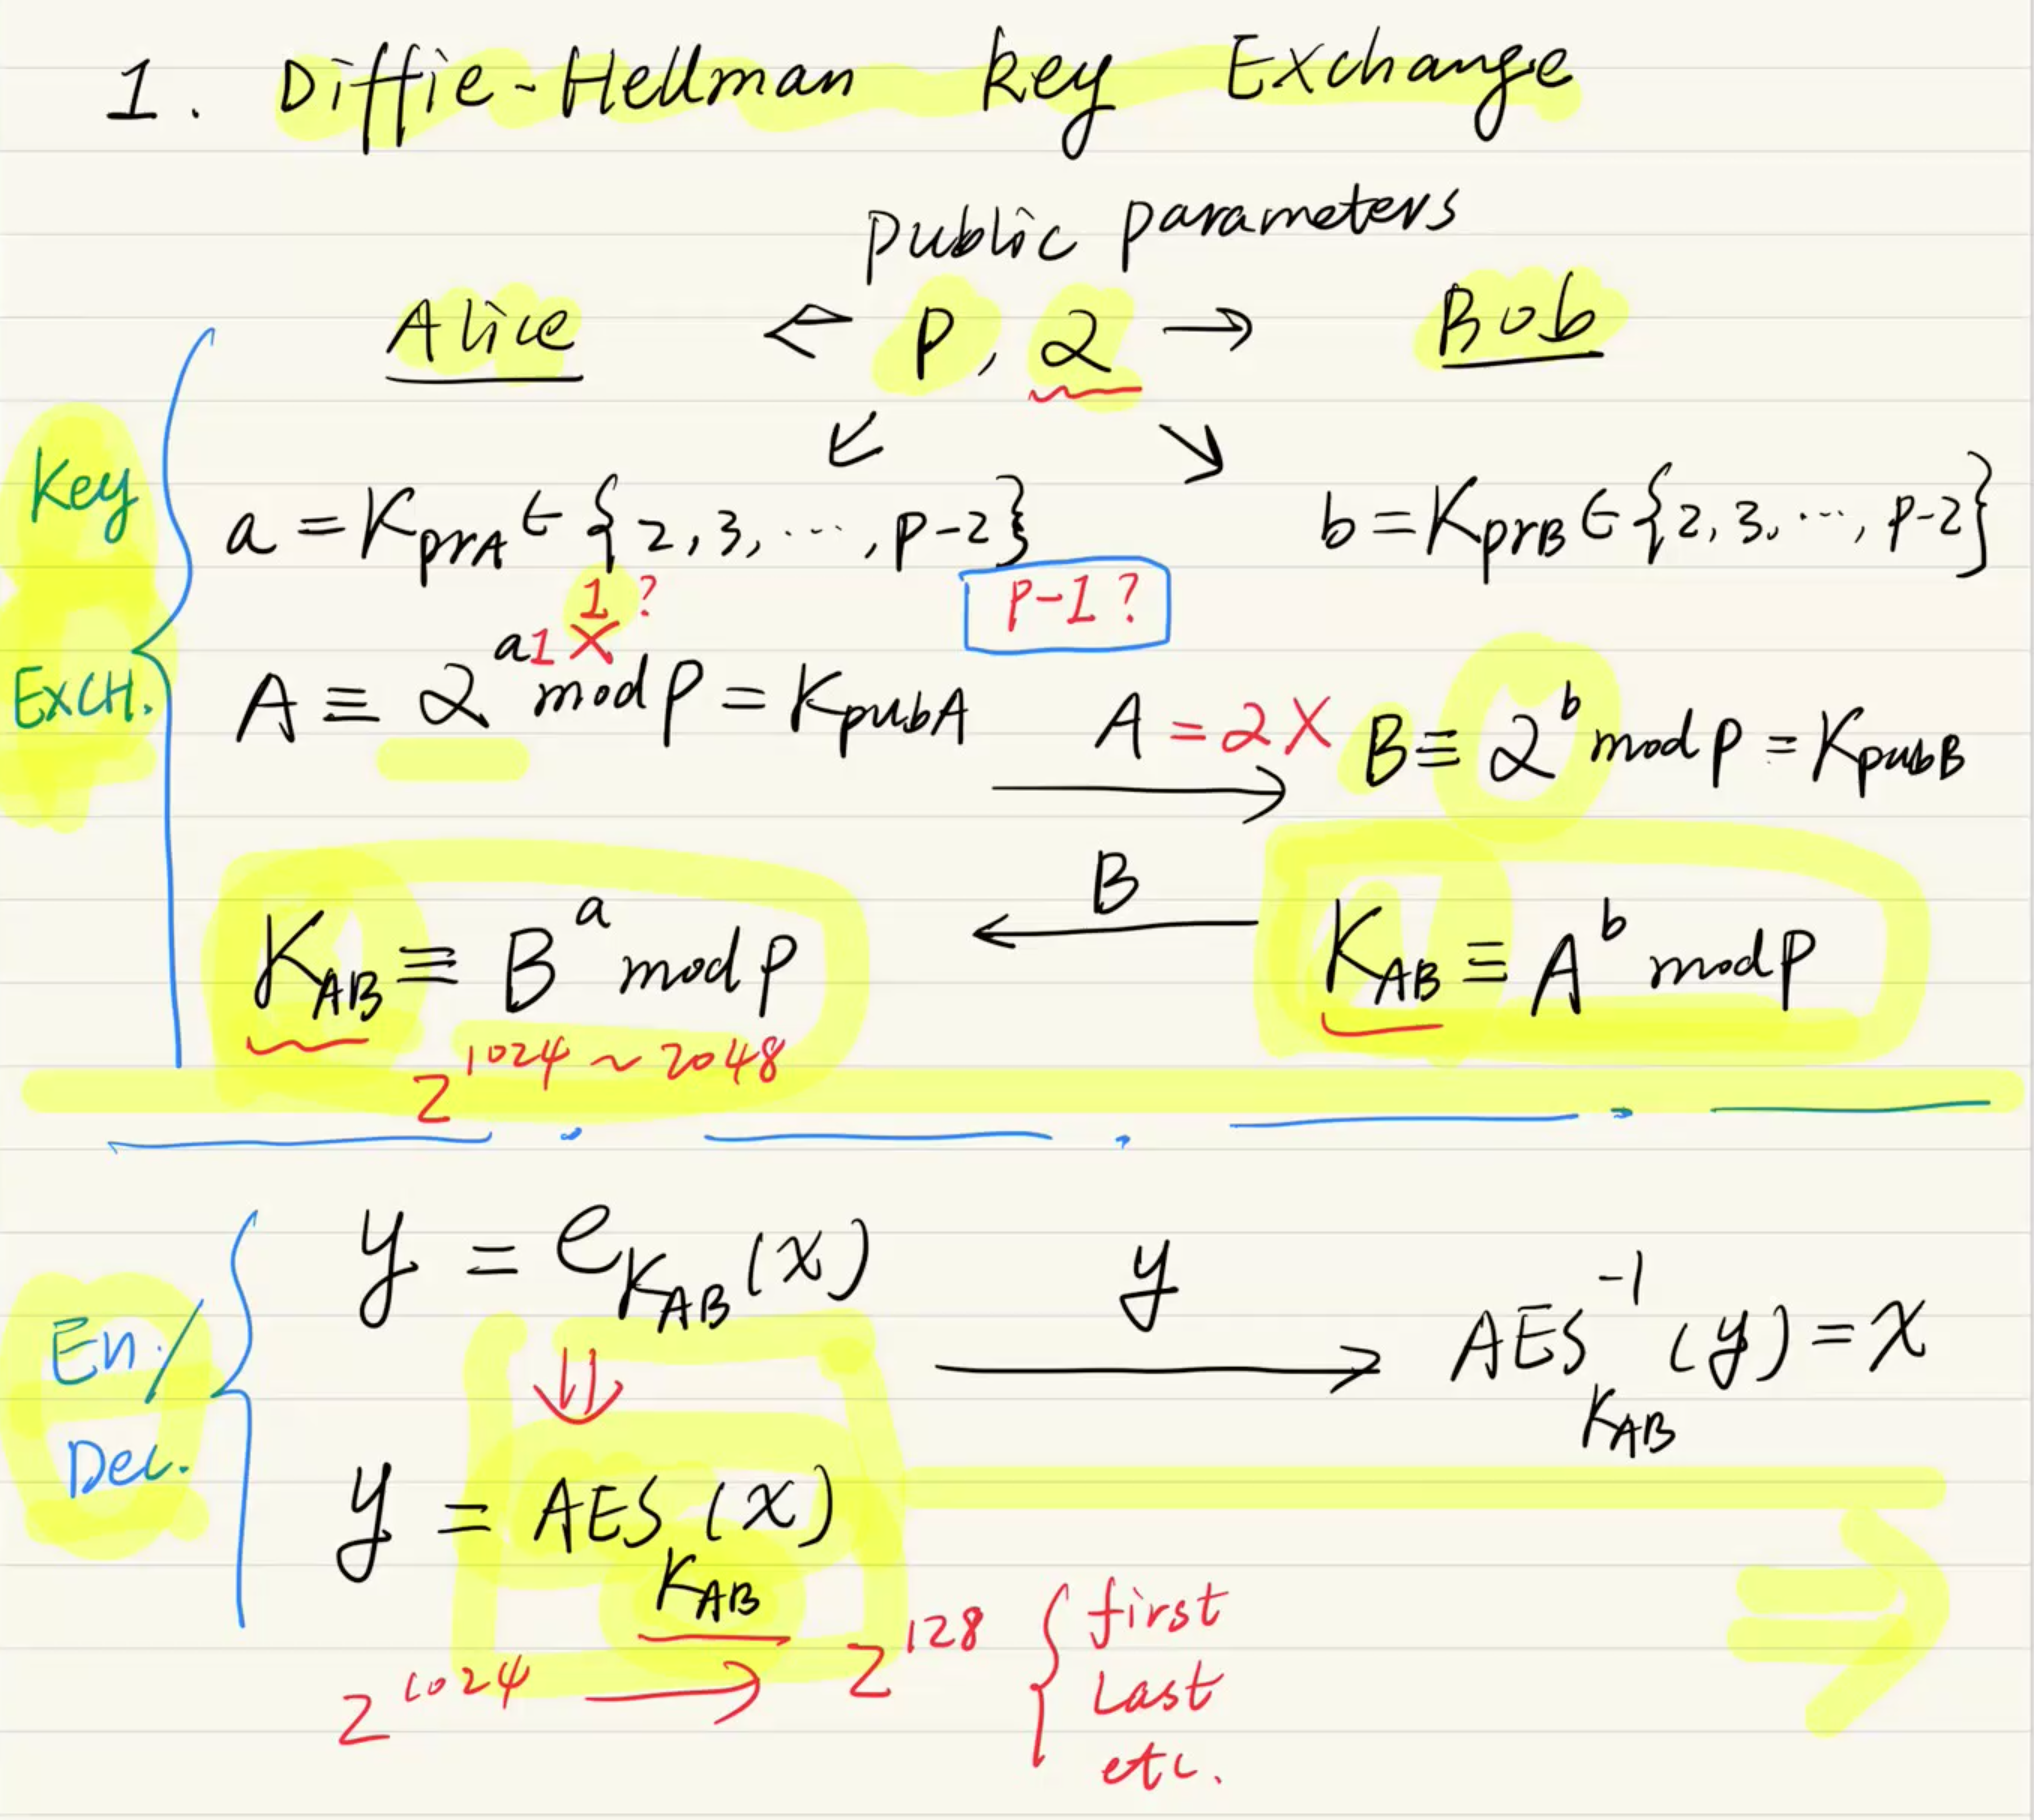 1. Diffie-Hellman key Exchange
public parameters
Alice ← p, α → Bob
Key
Exch.
a = K_prA ∈ {2, 3, ..., p-2}
b = K_prB ∈ {2, 3, ..., p-2}
1 ?
p-1 ?
1 X
A ≡ α^a mod p = K_pubA
A = α X
B ≡ α^b mod p = K_pubB
B
K_AB ≡ B^a mod p
K_AB ≡ A^b mod p
2^1024 ~ 2048
En./
Dec.
y = e_K_AB (x)
y
AES^-1_K_AB (y) = x
y = AES_K_AB (x)
2^1024 → 2^128
first
last
etc.